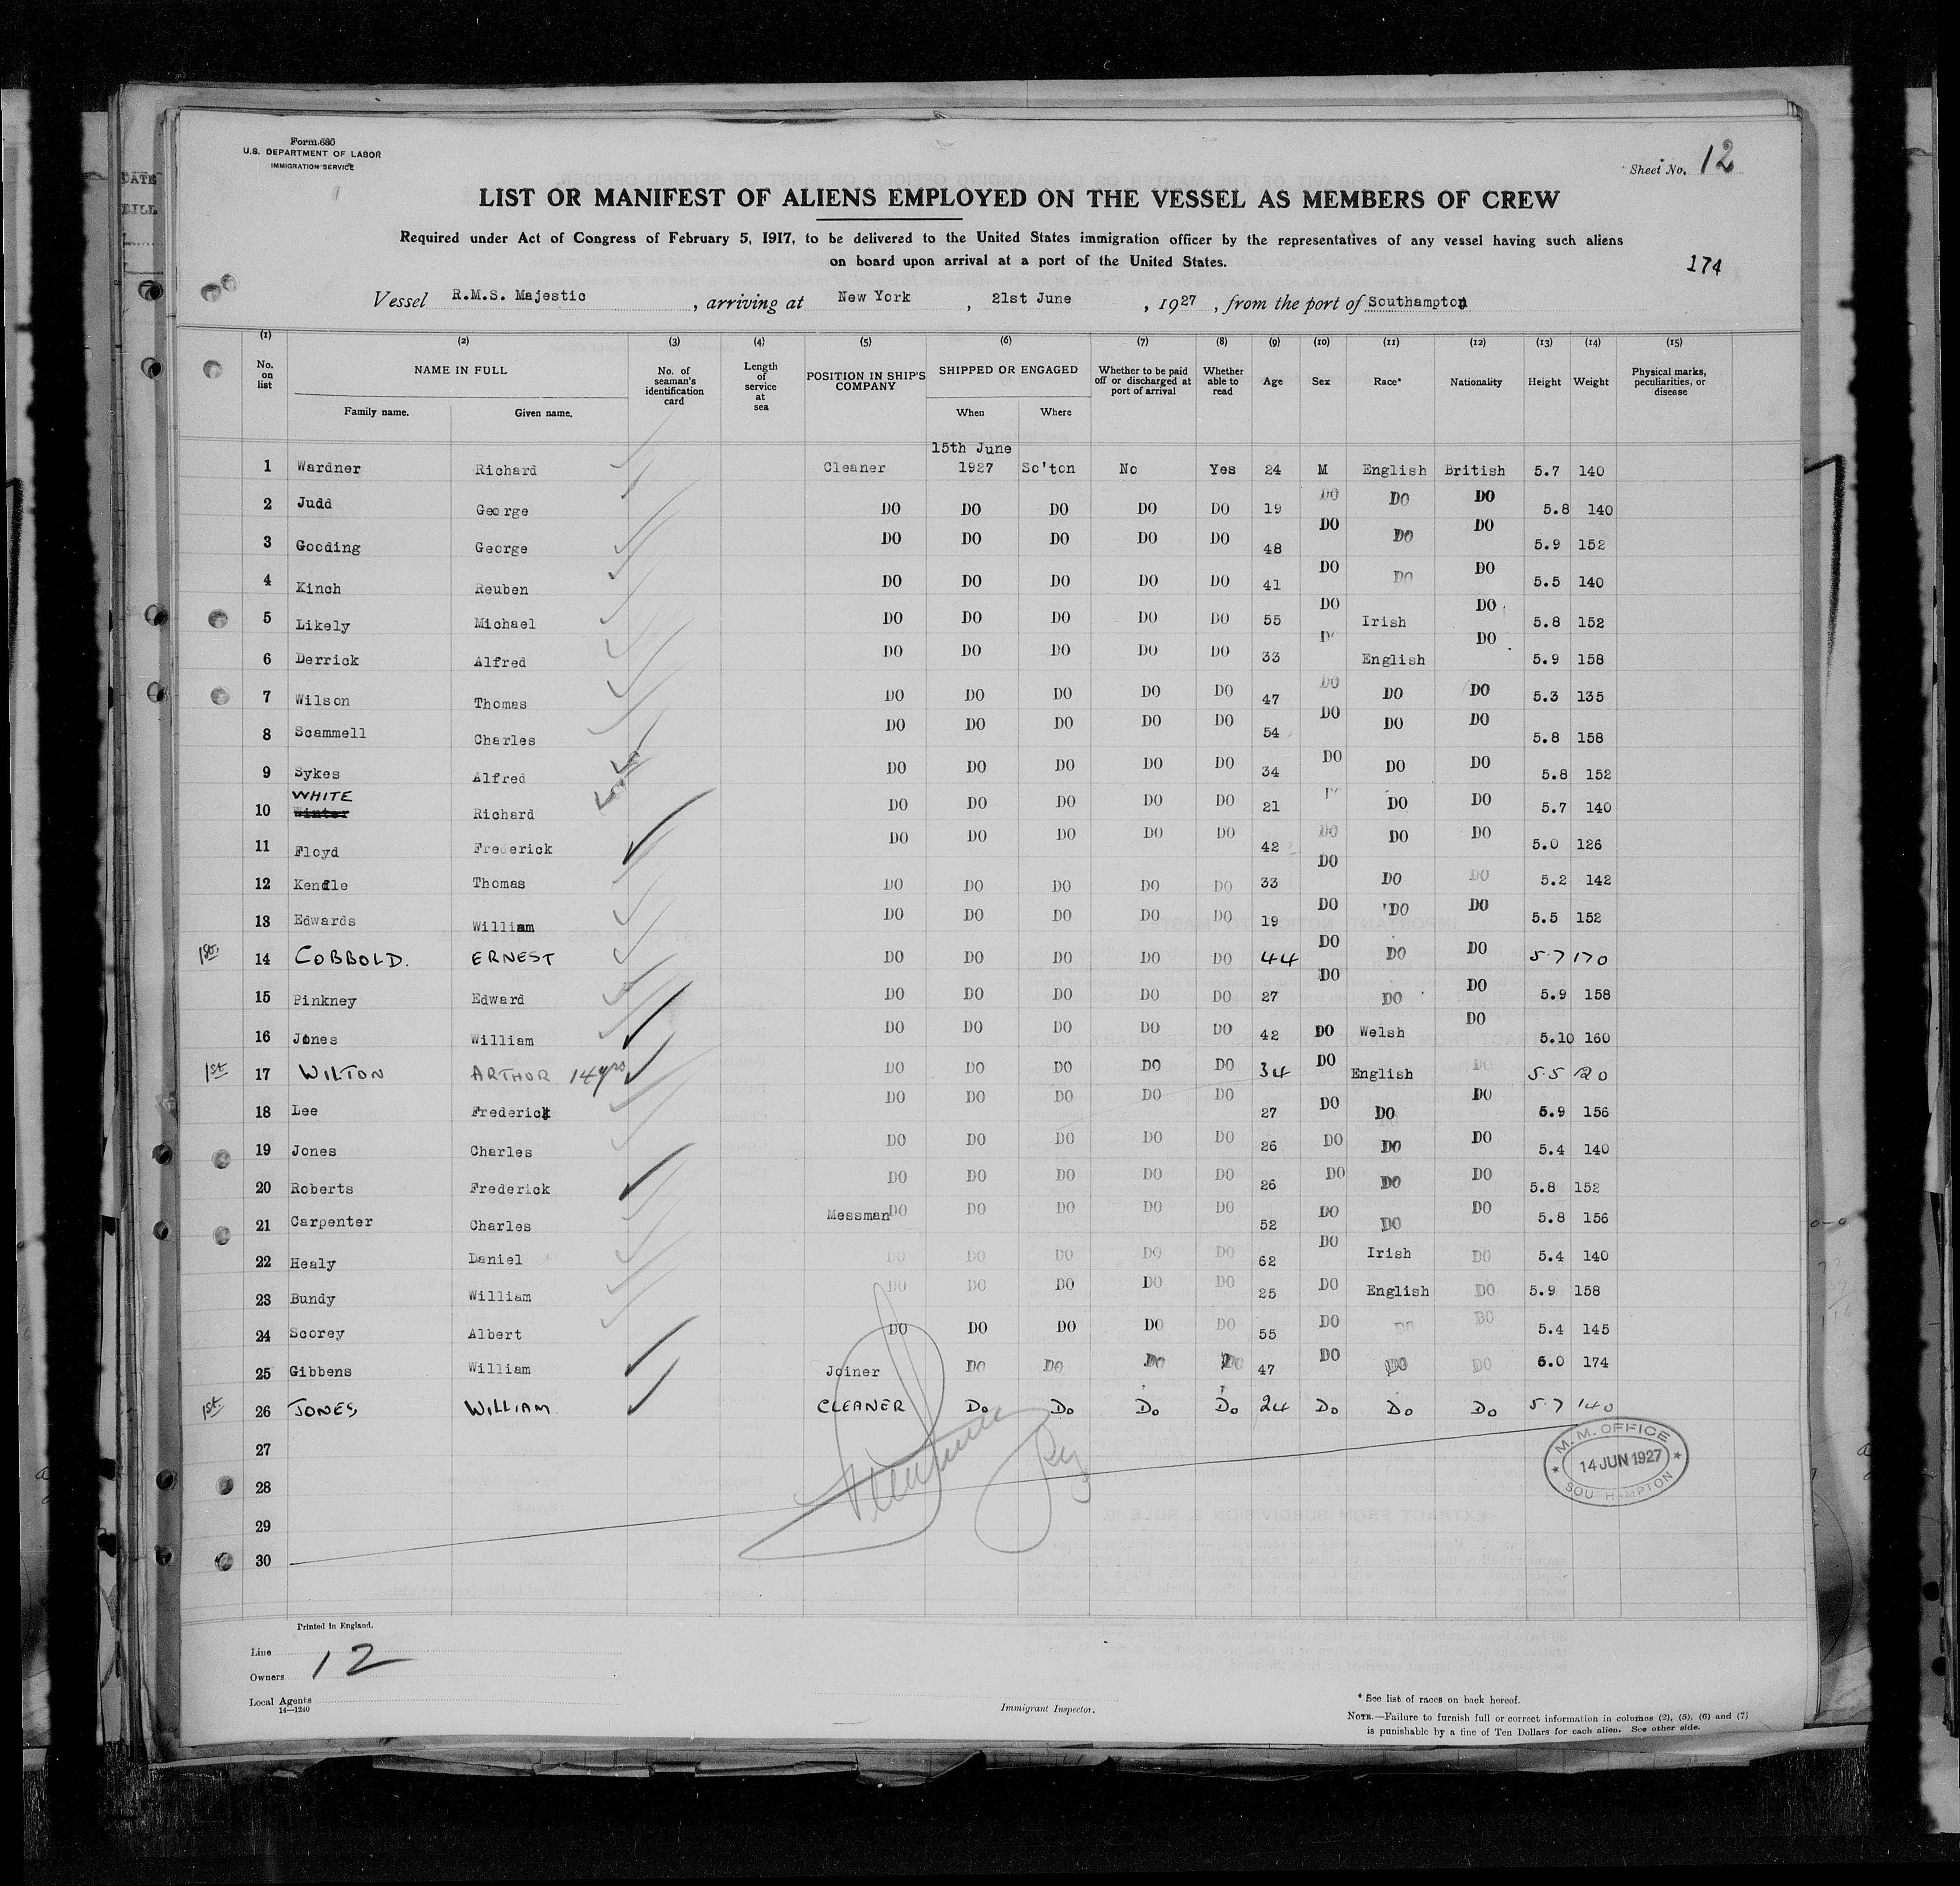 Form 680
U.S. DEPARTMENT OF LABOR
IMMIGRATION SERVICE
Sheet No. 12
LIST OR MANIFEST OF ALIENS EMPLOYED ON THE VESSEL AS MEMBERS OF CREW
Required under Act of Congress of February 5, 1917, to be delivered to the United States immigration officer by the representatives of any vessel having such aliens
on board upon arrival at a port of the United States.
174
Vessel R.M.S. Majestic, arriving at New York, 21st June, 1927, from the port of Southampton
(1) (2) (3) (4) (5) (6) (7) (8) (9) (10) (11) (12) (13) (14) (15)
No. on list NAME IN FULL Family name. Given name. No. of seaman's identification card Length of service at sea POSITION IN SHIP'S COMPANY SHIPPED OR ENGAGED When Where Whether to be paid off or discharged at port of arrival Whether able to read Age Sex Race* Nationality Height Weight Physical marks, peculiarities, or disease
15th June
1 Wardner Richard Cleaner 1927 So'ton No Yes 24 M English British 5.7 140
2 Judd George DO DO DO DO DO 19 DO DO DO 5.8 140
3 Gooding George DO DO DO DO DO 48 DO DO DO 5.9 152
4 Kinch Reuben DO DO DO DO DO 41 DO DO DO 5.5 140
5 Likely Michael DO DO DO DO DO 55 DO Irish DO 5.8 152
6 Derrick Alfred DO DO DO DO DO 33 DO English DO 5.9 158
7 Wilson Thomas DO DO DO DO DO 47 DO DO DO 5.3 135
8 Scammell Charles DO DO DO DO DO 54 DO DO DO 5.8 158
9 Sykes Alfred DO DO DO DO DO 34 DO DO DO 5.8 152
WHITE
10 Winter Richard DO DO DO DO DO 21 DO DO DO 5.7 140
11 Floyd Frederick DO DO DO DO DO 42 DO DO DO 5.0 126
12 Kendle Thomas DO DO DO DO DO 33 DO DO DO 5.2 142
13 Edwards William DO DO DO DO DO 19 DO DO DO 5.5 152
1st. 14 COBBOLD. ERNEST DO DO DO DO DO 44 DO DO DO 5.7 170
15 Pinkney Edward DO DO DO DO DO 27 DO DO DO 5.9 158
16 Jones William DO DO DO DO DO 42 DO Welsh DO 5.10 160
1st 17 WILTON ARTHUR 14yrs DO DO DO DO DO 34 DO English DO 5.5 120
18 Lee Frederick DO DO DO DO DO 27 DO DO DO 5.9 156
19 Jones Charles DO DO DO DO DO 26 DO DO DO 5.4 140
20 Roberts Frederick DO DO DO DO DO 26 DO DO DO 5.8 152
21 Carpenter Charles Messman DO DO DO DO DO 52 DO DO DO 5.8 156
22 Healy Daniel DO DO DO DO DO 62 DO Irish DO 5.4 140
23 Bundy William DO DO DO DO DO 25 DO English DO 5.9 158
24 Scorey Albert DO DO DO DO DO 55 DO DO DO 5.4 145
25 Gibbens William Joiner DO DO DO DO 47 DO DO DO 6.0 174
1st. 26 JONES WILLIAM CLEANER Do Do Do Do 24 Do Do Do 5.7 140
27
28
29
30
M. M. OFFICE
14 JUN 1927
SOU HAMPTON
Printed in England.
Line
Owners 12
Local Agents
14—1240
Immigrant Inspector.
* See list of races on back hereof.
NOTE.—Failure to furnish full or correct information in columns (2), (5), (6) and (7)
is punishable by a fine of Ten Dollars for each alien. See other side.